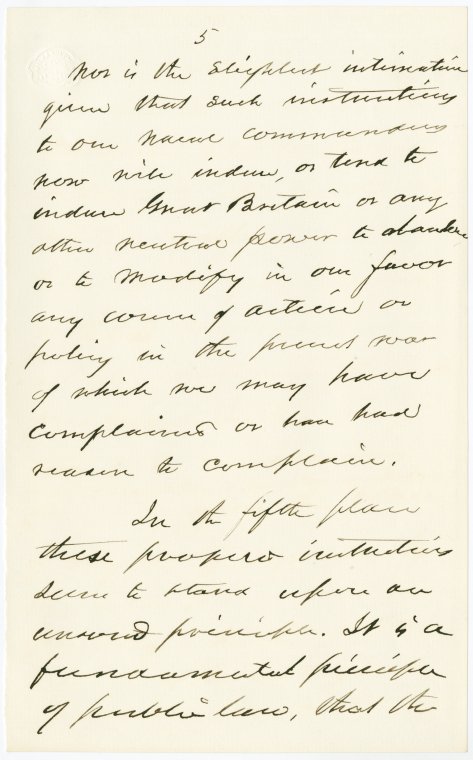 5
Nor is the slightest intimation
given that such instructions
to our naval commanders
now will induce, or tend to
induce Great Britain or any
other neutral power to abandon
or to modify in our favor
any course of action or
policy in the present war
of which we may have
complained or have had
reason to complain.
In the fifth place
these proposed instructions
seem to stand upon an
unsound principle. It is a
fundamental principle
of public law, that the